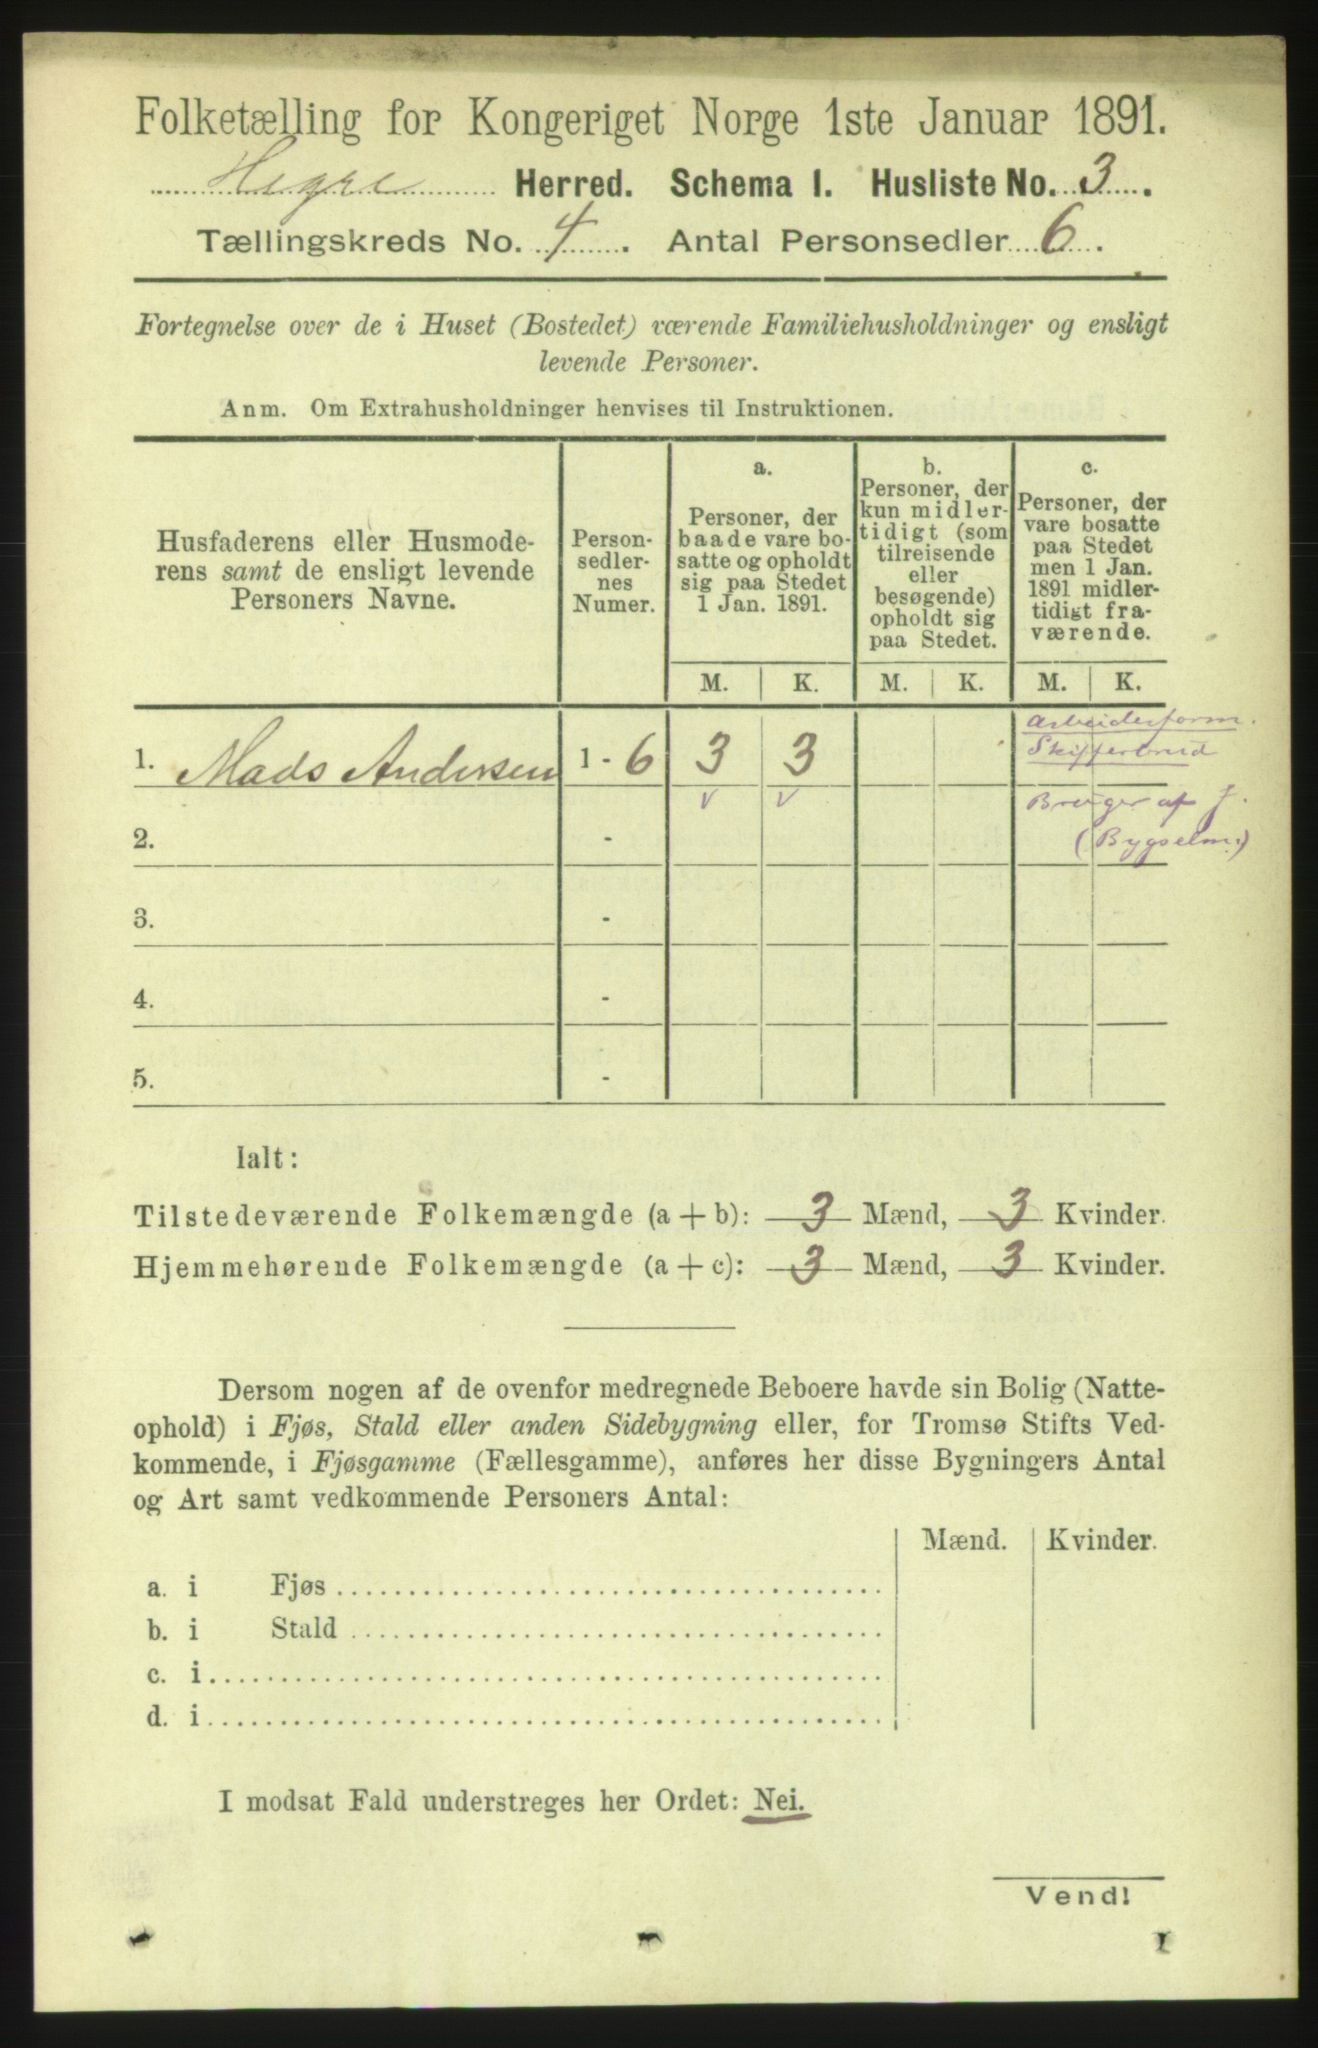 Folketælling for Kongeriget Norge 1ste Januar 1891.
Hegre Herred. Schema I. Husliste No. 3.
Tællingskreds No. 4. Antal Personsedler 6.
Fortegnelse over de i Huset (Bostedet) værende Familiehusholdninger og ensligt
levende Personer.
Anm. Om Extrahusholdninger henvises til Instruktionen.
Husfaderens eller Husmode-
rens samt de ensligt levende
Personers Navne.
Person-
sedler-
nes
Numer.
a.
Personer, der
baade vare bo-
satte og opholdt
sig paa Stedet
1 Jan. 1891.
b.
Personer, der
kun midler-
tidigt (som
tilreisende
eller
besøgende)
opholdt sig
paa Stedet.
c.
Personer, der
vare bosatte
paa Stedet
men 1 Jan.
1891 midler-
tidigt fra-
værende.
M. K. M. K. M. K.
1. Mads Andersen 1 - 6 3 3
v v
Arbeiderform.
Skifferbrud
Bruger af J.
(Bygselm.)
2. -
3. -
4. -
5. -
Ialt:
Tilstedeværende Folkemængde (a + b): 3 Mænd, 3 Kvinder.
Hjemmehørende Folkemængde (a + c): 3 Mænd, 3 Kvinder.
Dersom nogen af de ovenfor medregnede Beboere havde sin Bolig (Natte-
ophold) i Fjøs, Stald eller anden Sidebygning eller, for Tromsø Stifts Ved-
kommende, i Fjøsgamme (Fællesgamme), anføres her disse Bygningers Antal
og Art samt vedkommende Personers Antal:
Mænd. Kvinder.
a. i Fjøs
b. i Stald
c. i
d. i
I modsat Fald understreges her Ordet: Nei.
Vend!